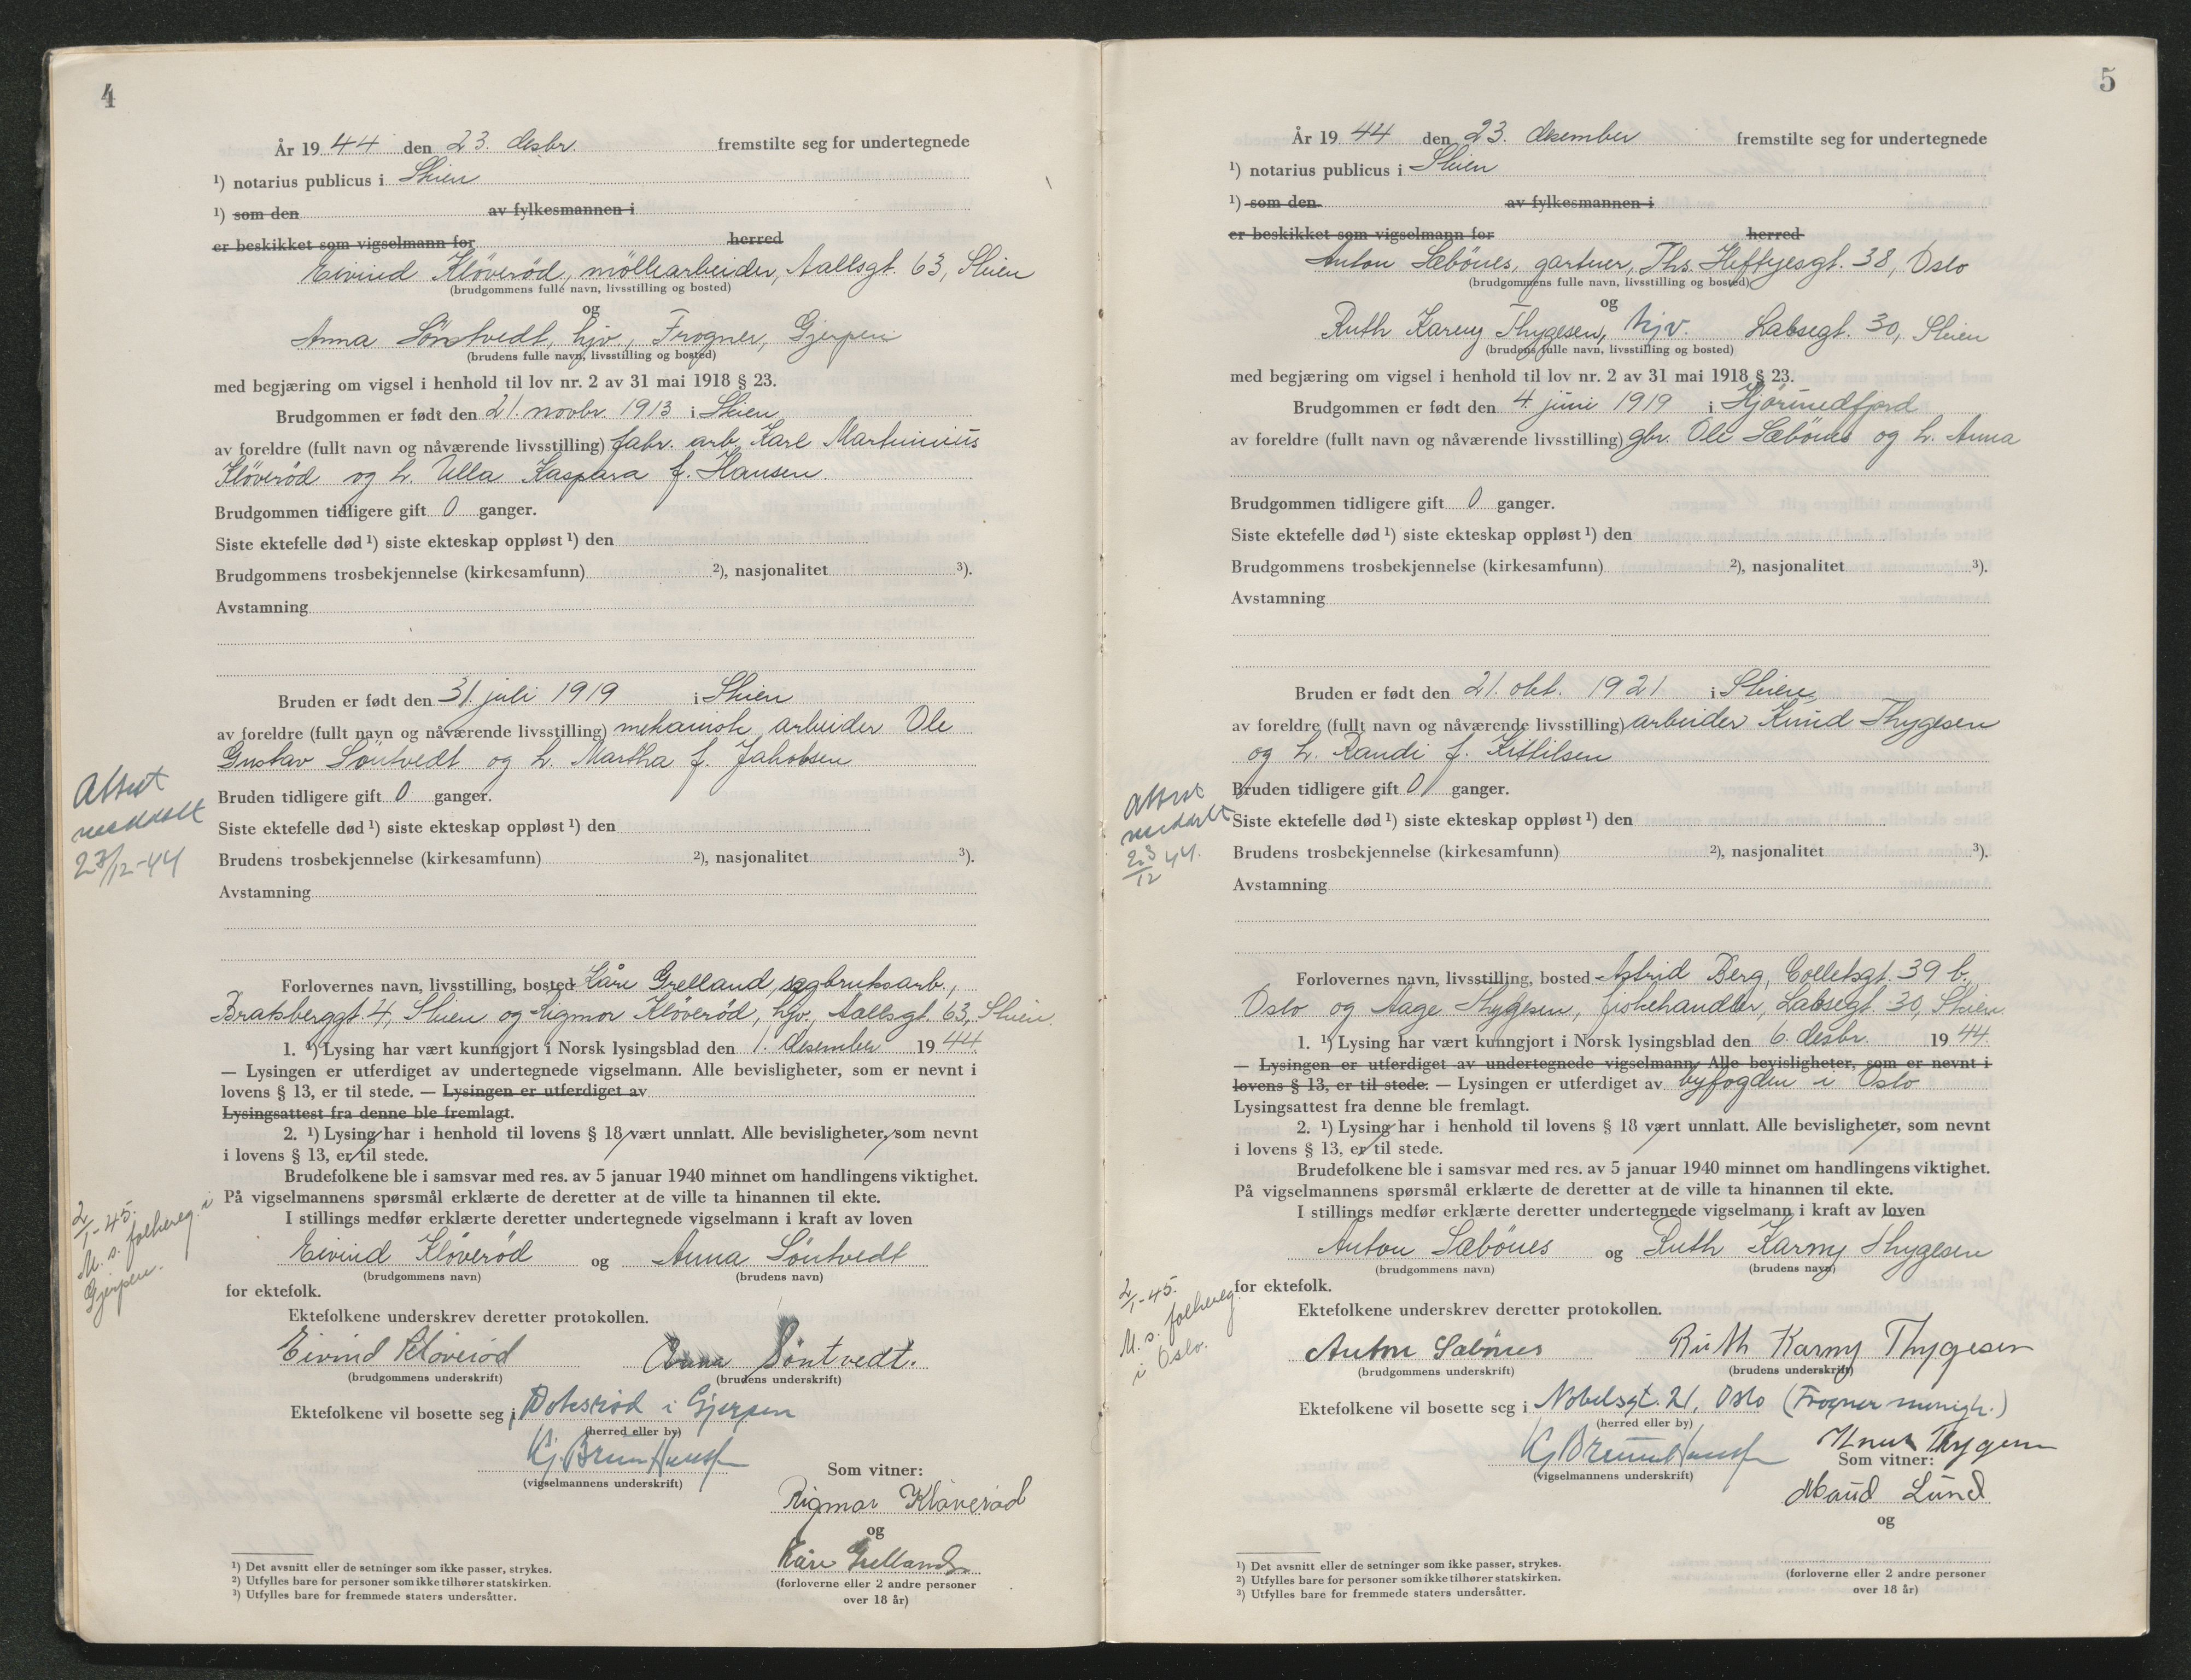 4
År 19 44 den 23. desbr. fremstilte seg for undertegnede
¹) notarius publicus i Skien
¹) som den av fylkesmannen i
er beskikket som vigselmann for herred
Eivind Kløverød, möllearbeider, Aallsgt. 63, Skien
(brudgommens fulle navn, livsstilling og bosted)
og
Anna Söntvedt, hjv., Frogner, Gjerpen
(brudens fulle navn, livsstilling og bosted)
med begjæring om vigsel i henhold til lov nr. 2 av 31 mai 1918 § 23.
Brudgommen er født den 21. novbr. 1913 i Skien
av foreldre (fullt navn og nåværende livsstilling) fabr. arb. Karl Martinius
Kløverød og h. Ulla Kaspara f. Hansen.
Brudgommen tidligere gift 0 ganger.
Siste ektefelle død ¹) siste ekteskap oppløst ¹) den
Brudgommens trosbekjennelse (kirkesamfunn) ²), nasjonalitet ³).
Avstamning
Bruden er født den 31. juli 1919 i Skien
av foreldre (fullt navn og nåværende livsstilling) mekanisk arbeider Ole
Gustav Söntvedt og h. Martha f. Jakobsen
Bruden tidligere gift 0 ganger.
Siste ektefelle død ¹) siste ekteskap oppløst ¹) den
Brudens trosbekjennelse (kirkesamfunn) ²), nasjonalitet ³).
Avstamning
Attest
meddelt
23/12-44
Forlovernes navn, livsstilling, bosted Kåre Grelland, sagbruksarb.,
Bratsberggt. 4, Skien og Rigmor Kløverød, hjv., Aallsgt. 63, Skien.
1. ¹) Lysing har vært kunngjort i Norsk lysingsblad den 1. desember 19 44.
— Lysingen er utferdiget av undertegnede vigselmann. Alle bevisligheter, som er nevnt i
lovens § 13, er til stede. — Lysingen er utferdiget av
Lysingsattest fra denne ble fremlagt.
2. ¹) Lysing har i henhold til lovens § 18 vært unnlatt. Alle bevisligheter, som nevnt
i lovens § 13, er til stede.
Brudefolkene ble i samsvar med res. av 5 januar 1940 minnet om handlingens viktighet.
På vigselmannens spørsmål erklærte de deretter at de ville ta hinannen til ekte.
I stillings medfør erklærte deretter undertegnede vigselmann i kraft av loven
Eivind Kløverød og Anna Söntvedt
(brudgommens navn) (brudens navn)
for ektefolk.
2/1-45.
M. s. folkereg. i
Gjerpen.
Ektefolkene underskrev deretter protokollen.
Eivind Kløverød Anna Söntvedt.
(brudgommens underskrift) (brudens underskrift)
Ektefolkene vil bosette seg i i Gjerpen
(herred eller by)
(vigselmannens underskrift)
Som vitner:
Rigmor Kløverød
og
Kåre Grelland
(forloverne eller 2 andre personer
over 18 år)
¹) Det avsnitt eller de setninger som ikke passer, strykes.
²) Utfylles bare for personer som ikke tilhører statskirken.
³) Utfylles bare for fremmede staters undersåtter.
5
År 19 44 den 23. desember fremstilte seg for undertegnede
¹) notarius publicus i Skien
¹) som den av fylkesmannen i
er beskikket som vigselmann for herred
Anton Sæbönes, gartner, Ths. Heftyesgt. 38, Oslo
(brudgommens fulle navn, livsstilling og bosted)
og
Ruth Karny Thygesen, hjv. Labsegt. 30, Skien
(brudens fulle navn, livsstilling og bosted)
med begjæring om vigsel i henhold til lov nr. 2 av 31 mai 1918 § 23.
Brudgommen er født den 4. juni 1919 i Hjörundfjord
av foreldre (fullt navn og nåværende livsstilling) gbr. Ole Sæbönes og h. Anna
Brudgommen tidligere gift 0 ganger.
Siste ektefelle død ¹) siste ekteskap oppløst ¹) den
Brudgommens trosbekjennelse (kirkesamfunn) ²), nasjonalitet ³).
Avstamning
Bruden er født den 21. okt. 1921 i Skien
av foreldre (fullt navn og nåværende livsstilling) arbeider Knud Thygesen
og h. Randi f. Kittilsen
Bruden tidligere gift 0 ganger.
Siste ektefelle død ¹) siste ekteskap oppløst ¹) den
Brudens trosbekjennelse (kirkesamfunn) ²), nasjonalitet ³).
Avstamning
Attest
meddelt
23/12 44.
Forlovernes navn, livsstilling, bosted Astrid Berg, Colletsgt. 39 b,
Oslo og Aage Thygesen, fiskehandler, Labsegt. 30, Skien
1. ¹) Lysing har vært kunngjort i Norsk lysingsblad den 6. desbr. 19 44.
— Lysingen er utferdiget av undertegnede vigselmann. Alle bevisligheter, som er nevnt i
lovens § 13, er til stede. — Lysingen er utferdiget av byfogden i Oslo
Lysingsattest fra denne ble fremlagt.
2. ¹) Lysing har i henhold til lovens § 18 vært unnlatt. Alle bevisligheter, som nevnt
i lovens § 13, er til stede.
Brudefolkene ble i samsvar med res. av 5 januar 1940 minnet om handlingens viktighet.
På vigselmannens spørsmål erklærte de deretter at de ville ta hinannen til ekte.
I stillings medfør erklærte deretter undertegnede vigselmann i kraft av loven
Anton Sæbönes og Ruth Karny Thygesen
(brudgommens navn) (brudens navn)
for ektefolk.
2/1-45.
M. s. folkereg.
i Oslo.
Ektefolkene underskrev deretter protokollen.
Anton Sæbönes Ruth Karny Thygesen
(brudgommens underskrift) (brudens underskrift)
Ektefolkene vil bosette seg i Nobelsgt. 21, Oslo (Frogner menigh.)
(herred eller by)
(vigselmannens underskrift)
Knut Thygesen
Som vitner:
Maud Lund
og
(forloverne eller 2 andre personer
over 18 år)
¹) Det avsnitt eller de setninger som ikke passer, strykes.
²) Utfylles bare for personer som ikke tilhører statskirken.
³) Utfylles bare for fremmede staters undersåtter.